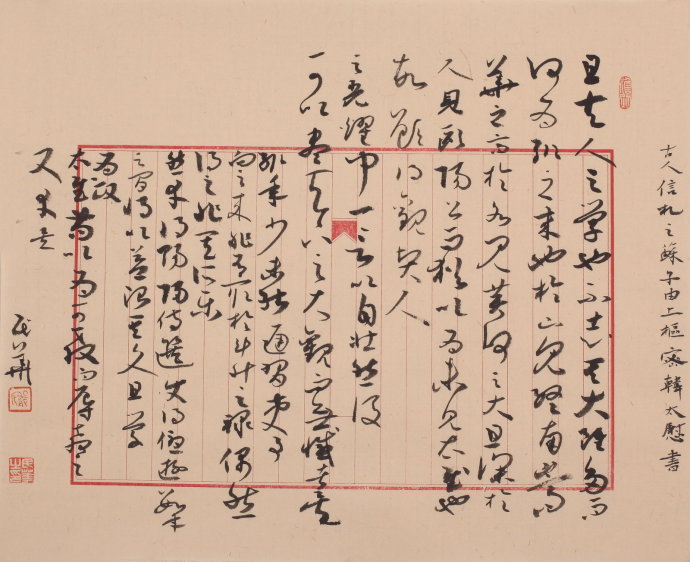 古人信札之蘇子由上樞密韓太慰書
且夫人之學也不志其大雖多而
何為轍之來也於山見終南嵩
華之高於水見黃河之大且深於
人見歐陽公而猶以為未見太尉也
故願得觀賢人
之光耀聞一言以自壯然後
可以盡天下之大觀而無憾者矣
轍年少未能通習吏事
向之來非有取於斗升之祿偶然
得之非其所樂
然幸得賜歸待選使得優游數年
之間將以益治其文且學
為政
太尉苟以為可教而辱教之
又幸矣